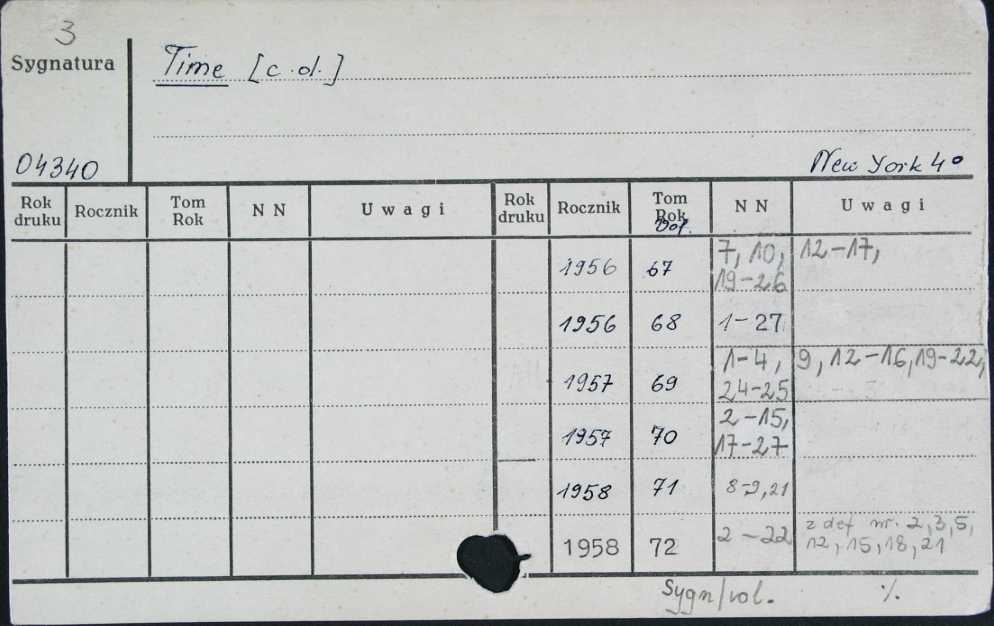 3
Sygnatura
Time [c.d.]
04340
New York 4°
Rok druku Rocznik Tom Rok N N Uwagi Rok druku Rocznik Tom Rok Vol. N N Uwagi
1956 67 7, 10, 12-17,
19-26
1956 68 1-27
1957 69 1-4, 9, 12-16, 19-22,
24-25
1957 70 2-15,
17-27
1958 71 8-9, 21
1958 72 2-22 z def nr. 2, 3, 5,
12, 15, 18, 21
Sygn/vol. ./.